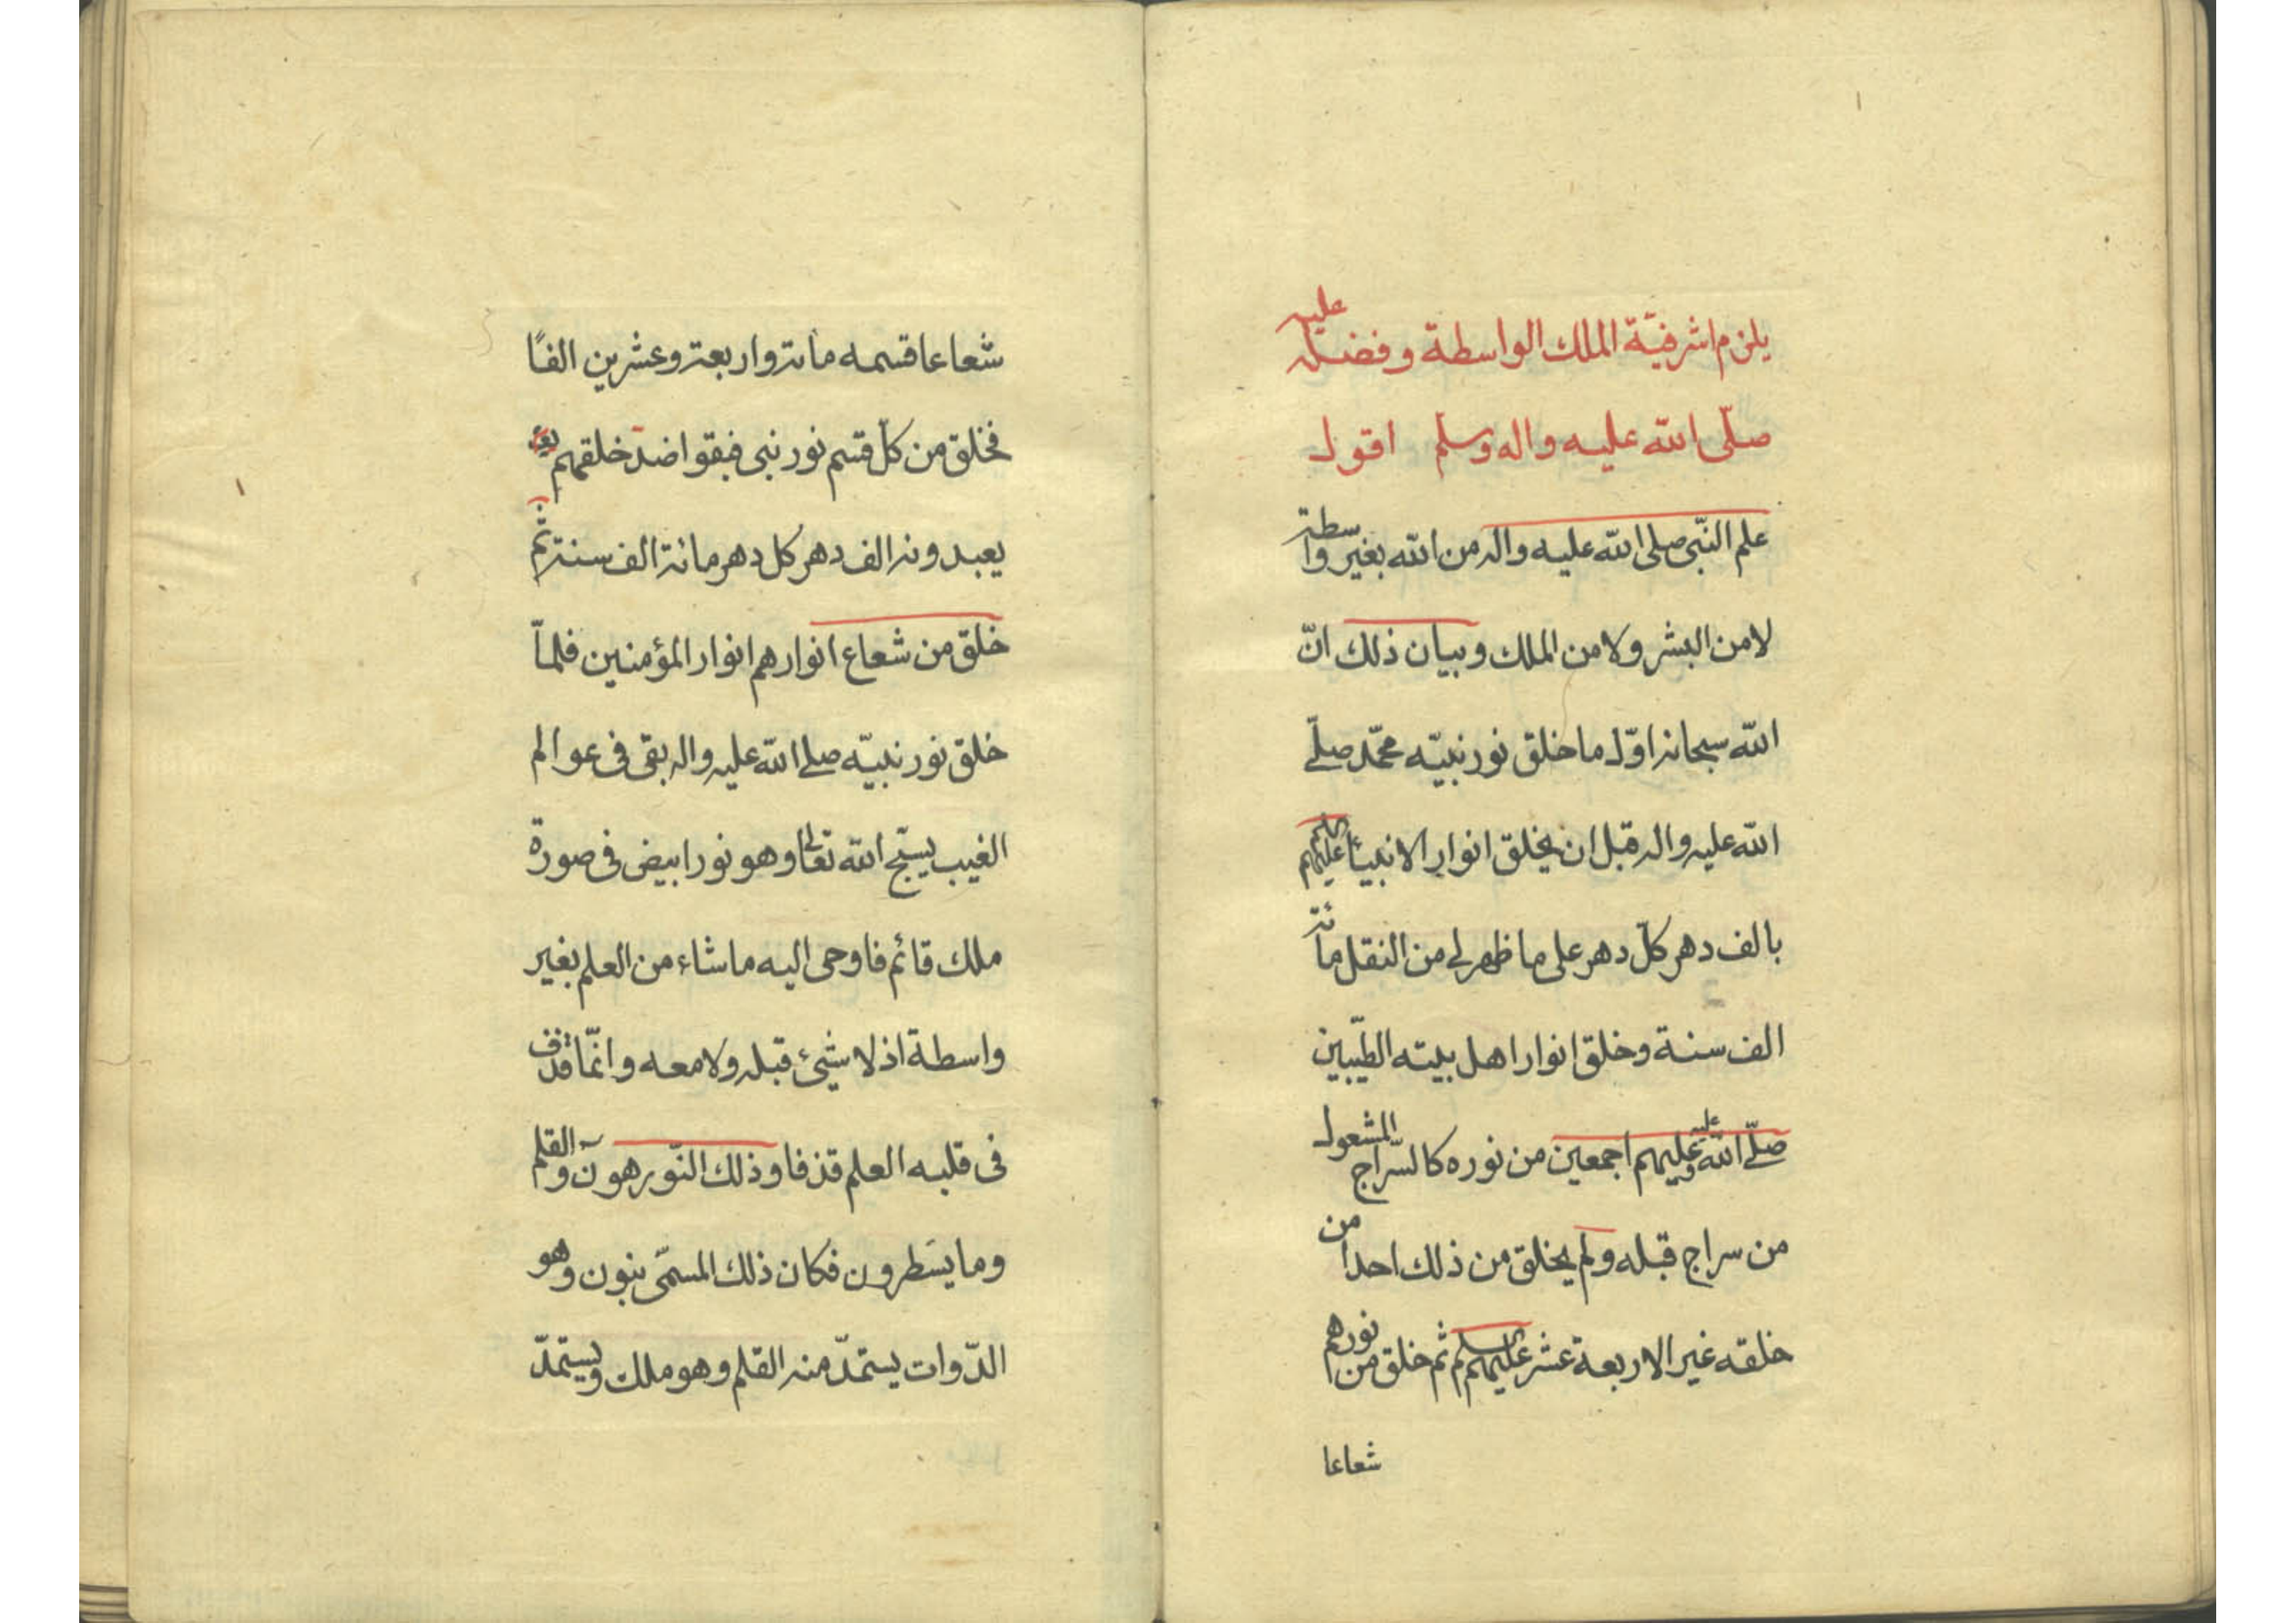 يلزم اشرفيّة الملك الواسطة وفضله عليه
صلّى الله عليه واله وسلم اقول
علم النّبى صلى الله عليه واله من الله بغير واسطة
لا من البشر ولا من الملك وبيان ذلك انّ
الله سبحانه اوّل ما خلق نور نبيّه محمّد صلّى
الله عليه واله قبل ان يخلق انوار الانبياء عليهم السلم
بالف دهر كلّ دهر على ما ظهر لى من النقل مائة
الف سنة وخلق انوار اهل بيته الطيّبين
صلّى الله عليه وعليهم اجمعين من نوره كالسّراج المشعول
من سراج قبله ولم يخلق من ذلك احدا من
خلقه غير الاربعة عشر عليهم السلم ثم خلق من نورهم
شعاعا
شعاعا قسمه مائة واربعة وعشرين الفًا
فخلق من كلّ قسم نور نبى فبقوا خلقهم
يعبدونه الف دهر كل دهر مائة الف سنة ثمّ
خلق من شعاع انوارهم انوار المؤمنين فلمّا
خلق نور نبيّه صلى الله عليه واله بقى فى عوالم
الغيب يسبّح الله تعالى وهو نور ابيض فى صورة
ملك قائم فاوحى اليه ما شاء من العلم بغير
واسطة اذ لا شيئ قبله ولا معه وانّما قذف
فى قلبه العلم قذفا وذلك النّور هو نٓ والقلم
وما يسَطرون فكان ذلك المسمّى بنون وهو
الدّوات يستمدّ منه القلم وهو ملك ويستمدّ